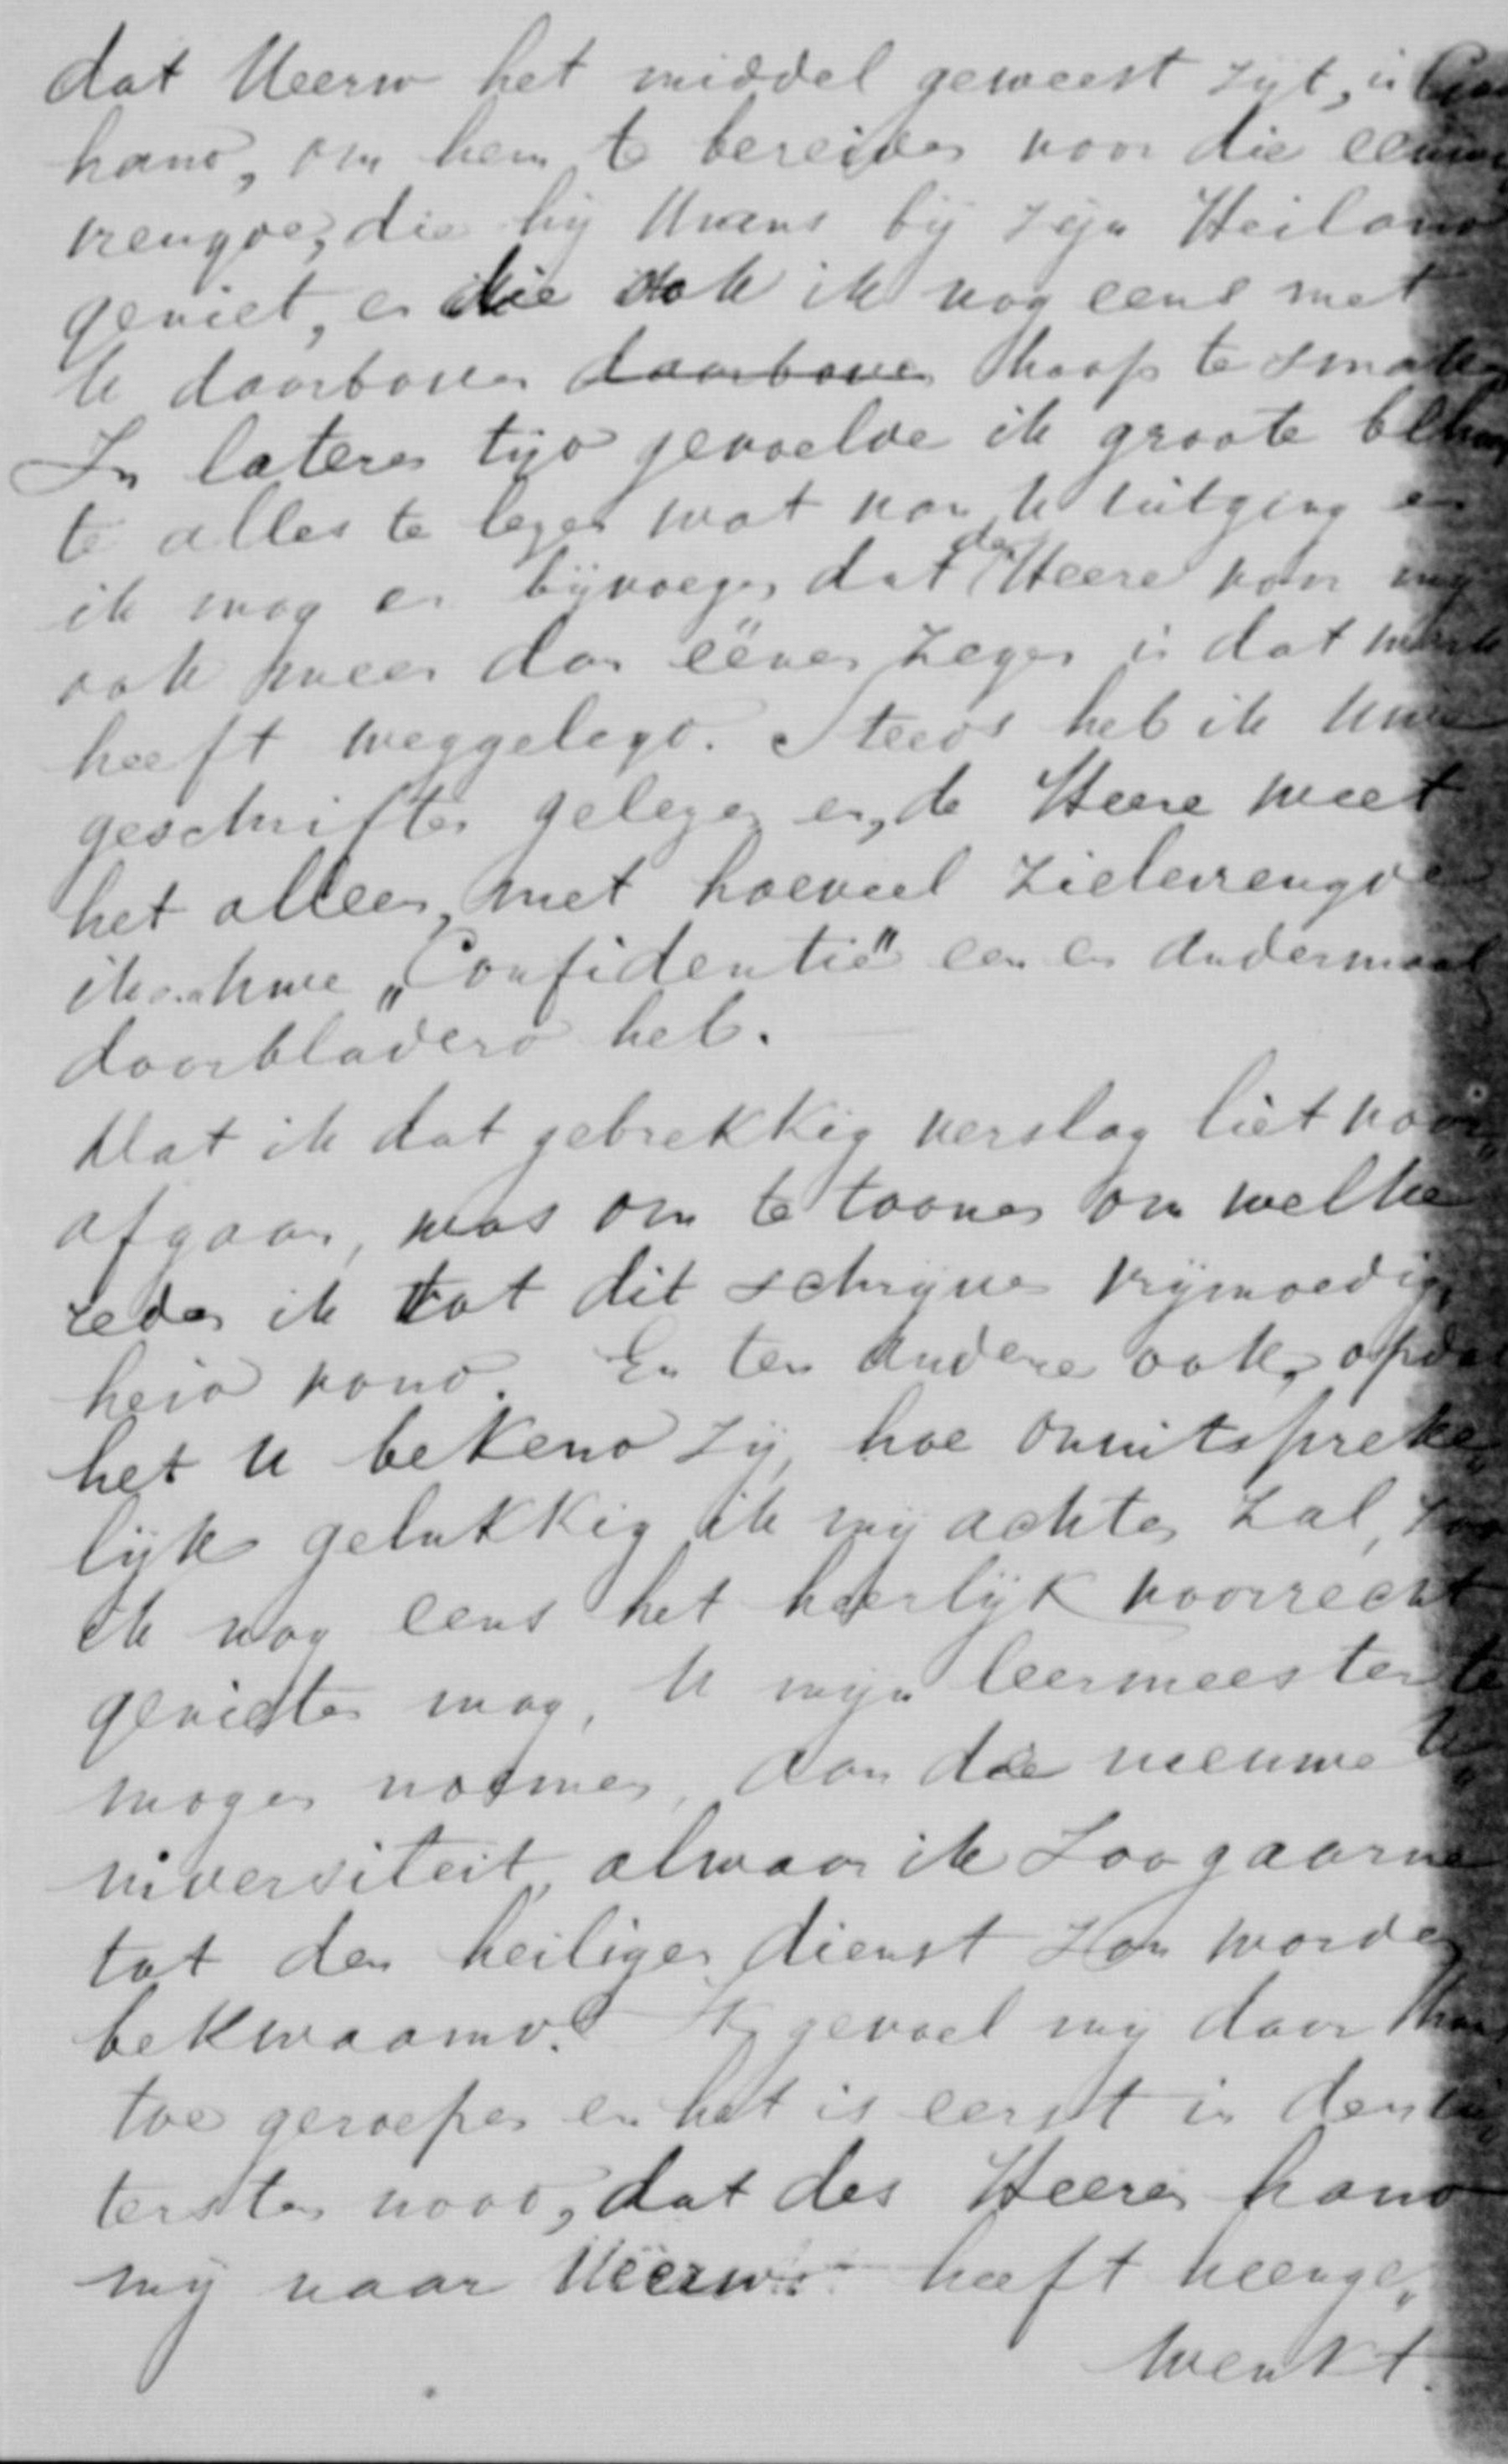 dat UEerw het middel geweest zijt, in
hand, om hem te bereiden voor die eeuwi
vreugde, die hij thans bij zijn Heiland
geniet, en die ook ik nog eens met
U daarboven daarboven hoop te smaken
In lateren tijd gevoelde ik groote beho
te alles te lezen wat van U uitging en
ik mag er bijvoegen, dat de Heere voor mij
ook meer dan éénen zegen in dat werk
heeft weggelegd. Steeds heb ik Uwe
geschriften gelezen en, de Heere weet
het alleen, met hoeveel zielevreugde
ik Uwe „Confidentie" een en andermaal
doorbladerd heb.
Dat ik dat gebrekkig verslag liet voor„
afgaan, was om te toonen om welke
reden ik tot dit schrijven vrijmoedig„
heid vond. En ten andere ook, opdat
het U bekend zij, hoe onuitspreke„
lijk gelukkig ik mij achten zal, zoo
ik nog eens het heerlijk voorrecht
genieten mag, U mijn leermeester te
mogen noemen, aan die nieuwe U„
niversiteit, alwaar ik zoo gaarne
tot den heiligen dienst zou worden
bekwaamd. Ik gevoel mij daar
toe geroepen en het is eerst in den ui„
tersten nood, dat des Heeren hand
mij naar UEerw. heeft heenge„
wenkt.